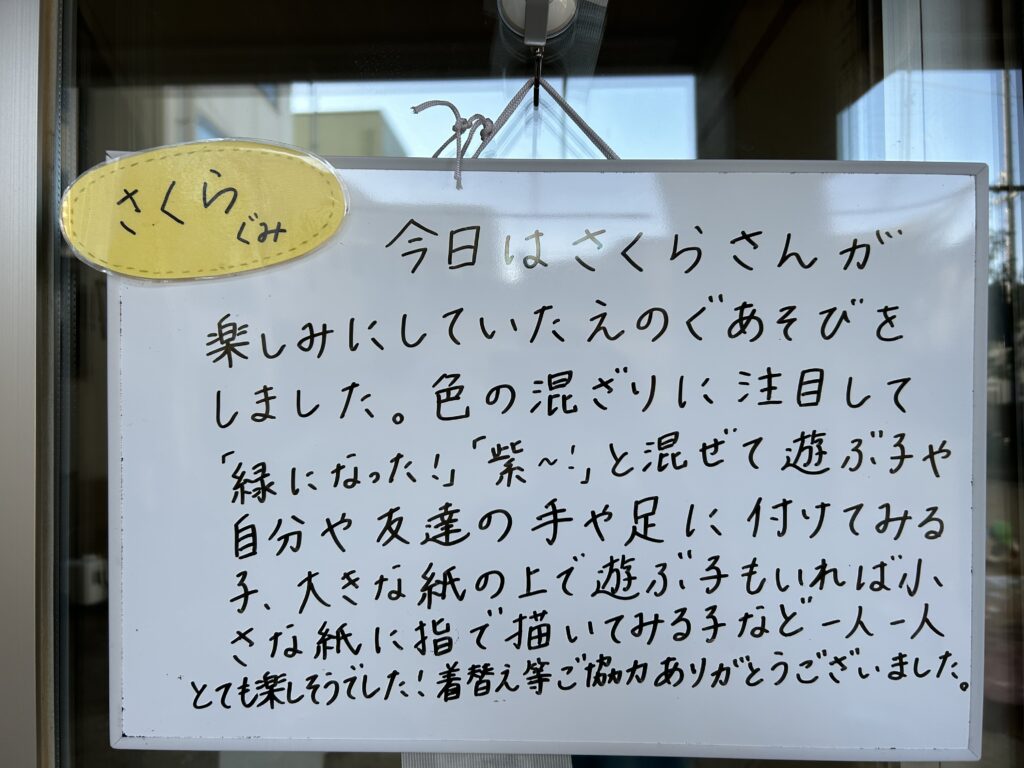 さくら
ぐみ
今日はさくらさんが
楽しみにしていたえのぐあそびを
しました。色の混ざりに注目して
「緑になった!」「紫～!」と混ぜて遊ぶ子や
自分や友達の手や足に付けてみる
子、大きな紙の上で遊ぶ子もいれば小
さな紙に指で描いてみる子など一人一人
とても楽しそうでした!着替え等ご協力ありがとうございました。